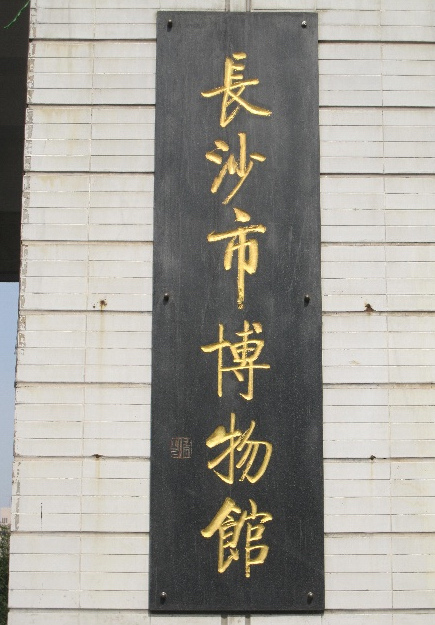 長沙市博物館